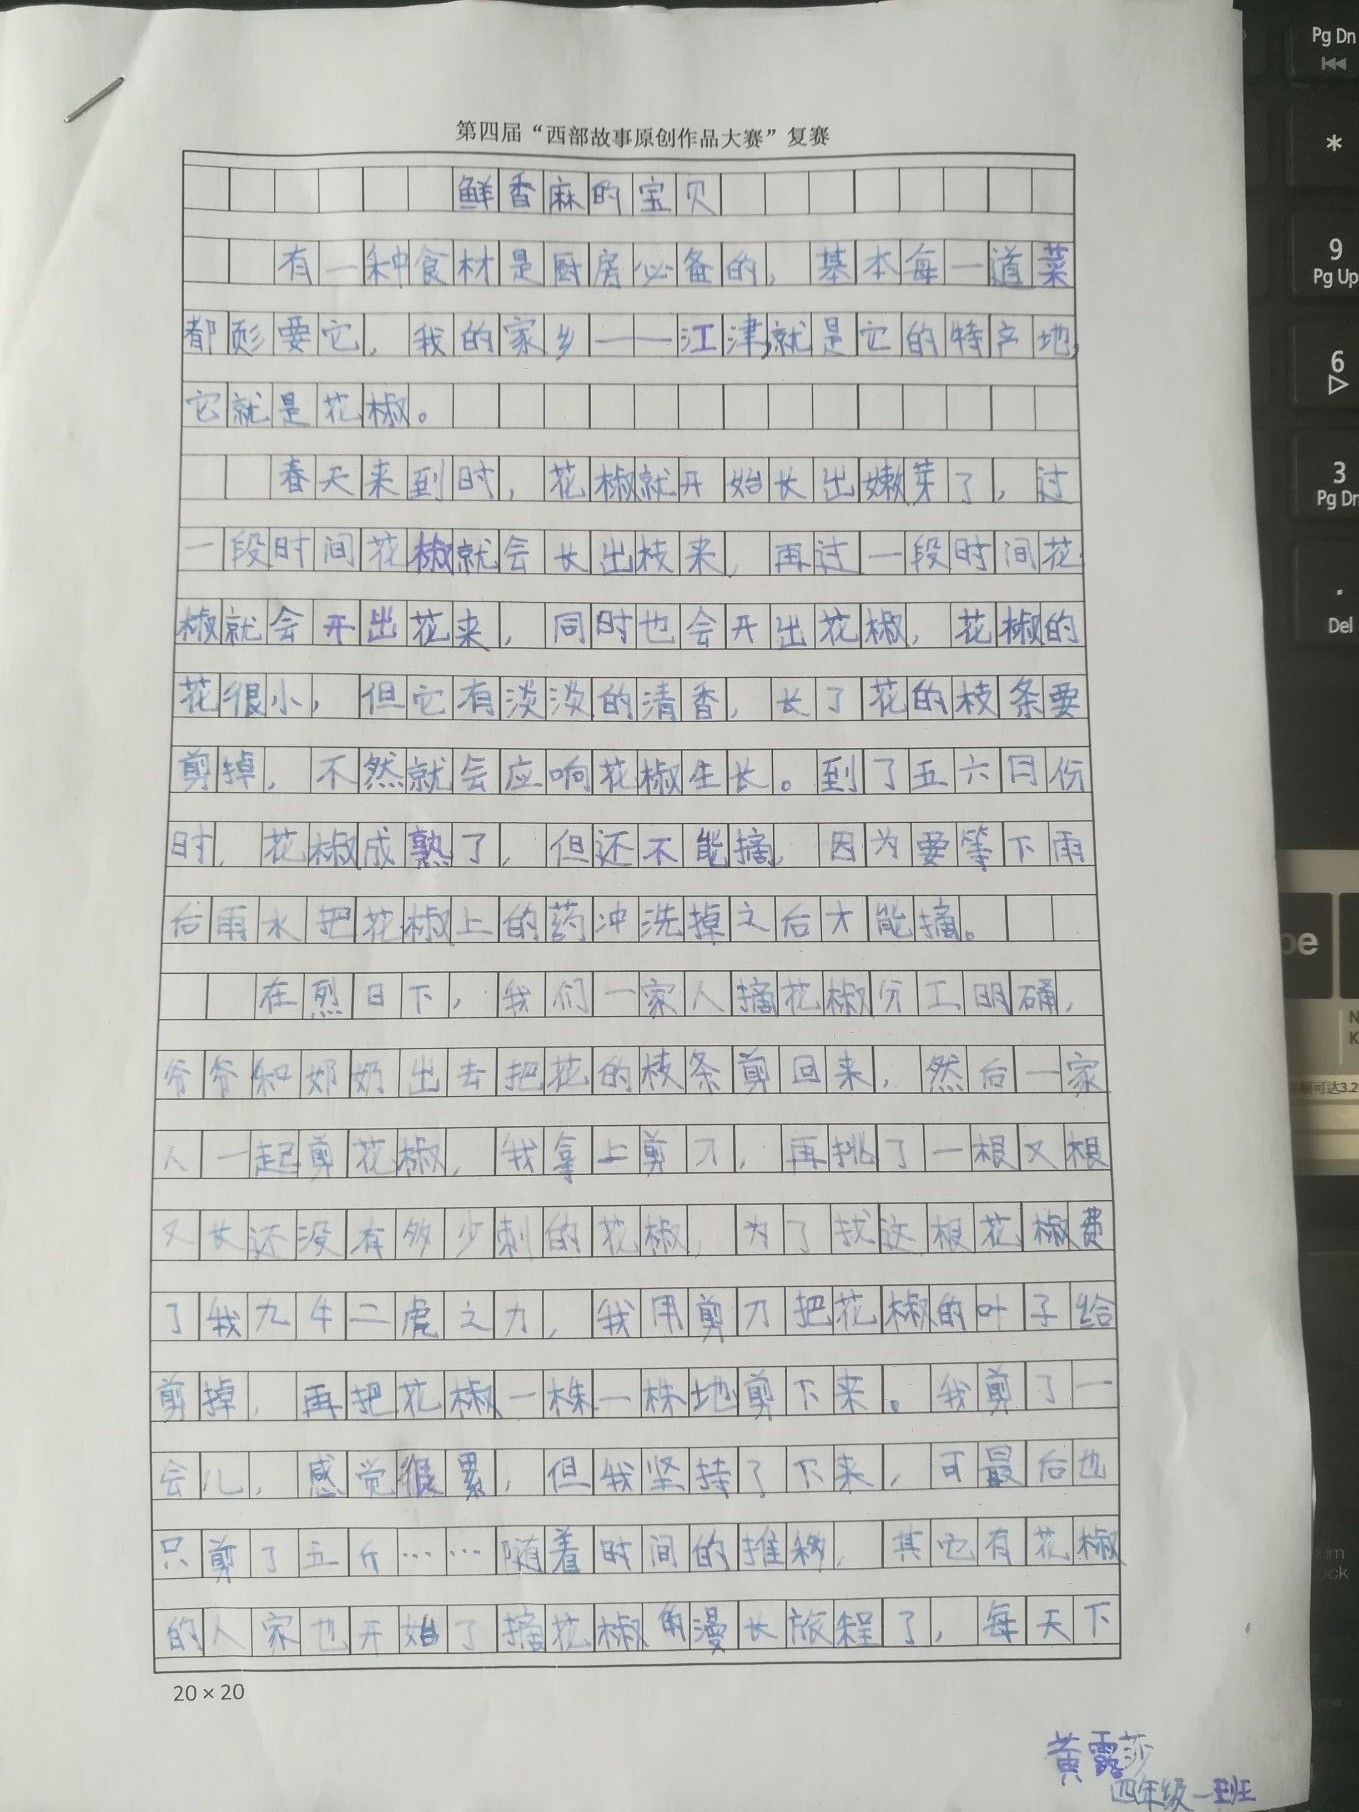 第四届“西部故事原创作品大赛”复赛
鲜香麻的宝贝
有一种食材是厨房必备的，基本每一道菜
都需要它，我的家乡——江津，就是它的特产地，
它就是花椒。
春天来到时，花椒就开始长出嫩芽了，过
一段时间花椒就会长出枝来，再过一段时间花
椒就会开出花来，同时也会开出花椒，花椒的
花很小，但它有淡淡的清香，长了花的枝条要
剪掉，不然就会应响花椒生长。到了五六月份
时，花椒成熟了，但还不能摘，因为要等下雨
后雨水把花椒上的药冲洗掉之后才能摘。
在烈日下，我们一家人摘花椒分工明确，
爷爷和奶奶出去把花的枝条剪回来，然后一家
人一起剪花椒，我拿上剪刀，再挑了一根又根
又长还没有多少刺的花椒，为了找这根花椒费
了我九牛二虎之力，我用剪刀把花椒的叶子给
剪掉，再把花椒一株一株地剪下来。我剪了一
会儿，感觉很累，但我坚持了下来，可最后也
只剪了五斤……随着时间的推移，其它有花椒
的人家也开始了摘花椒的漫长旅程了，每天下
20×20
黄露莎
四年级一班
Pg Dn
*
9
Pg Up
6
3
Pg Dn
.
Del